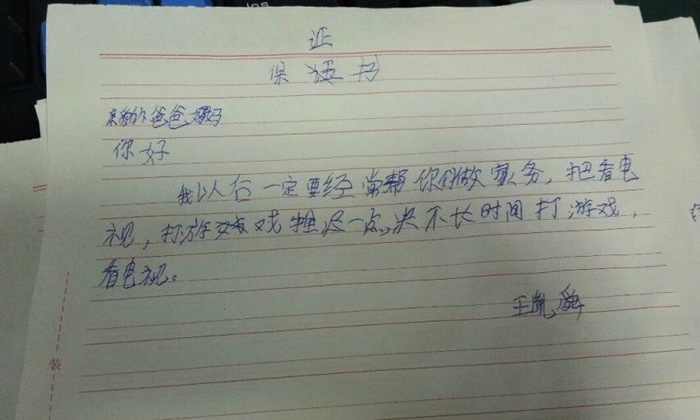 证
保证书
亲爱的爸爸妈妈
你好
我以后一定要经常帮你们做家务，把看电
视，打游戏推迟一点，决不长时间打游戏，
看电视。
王胤
装